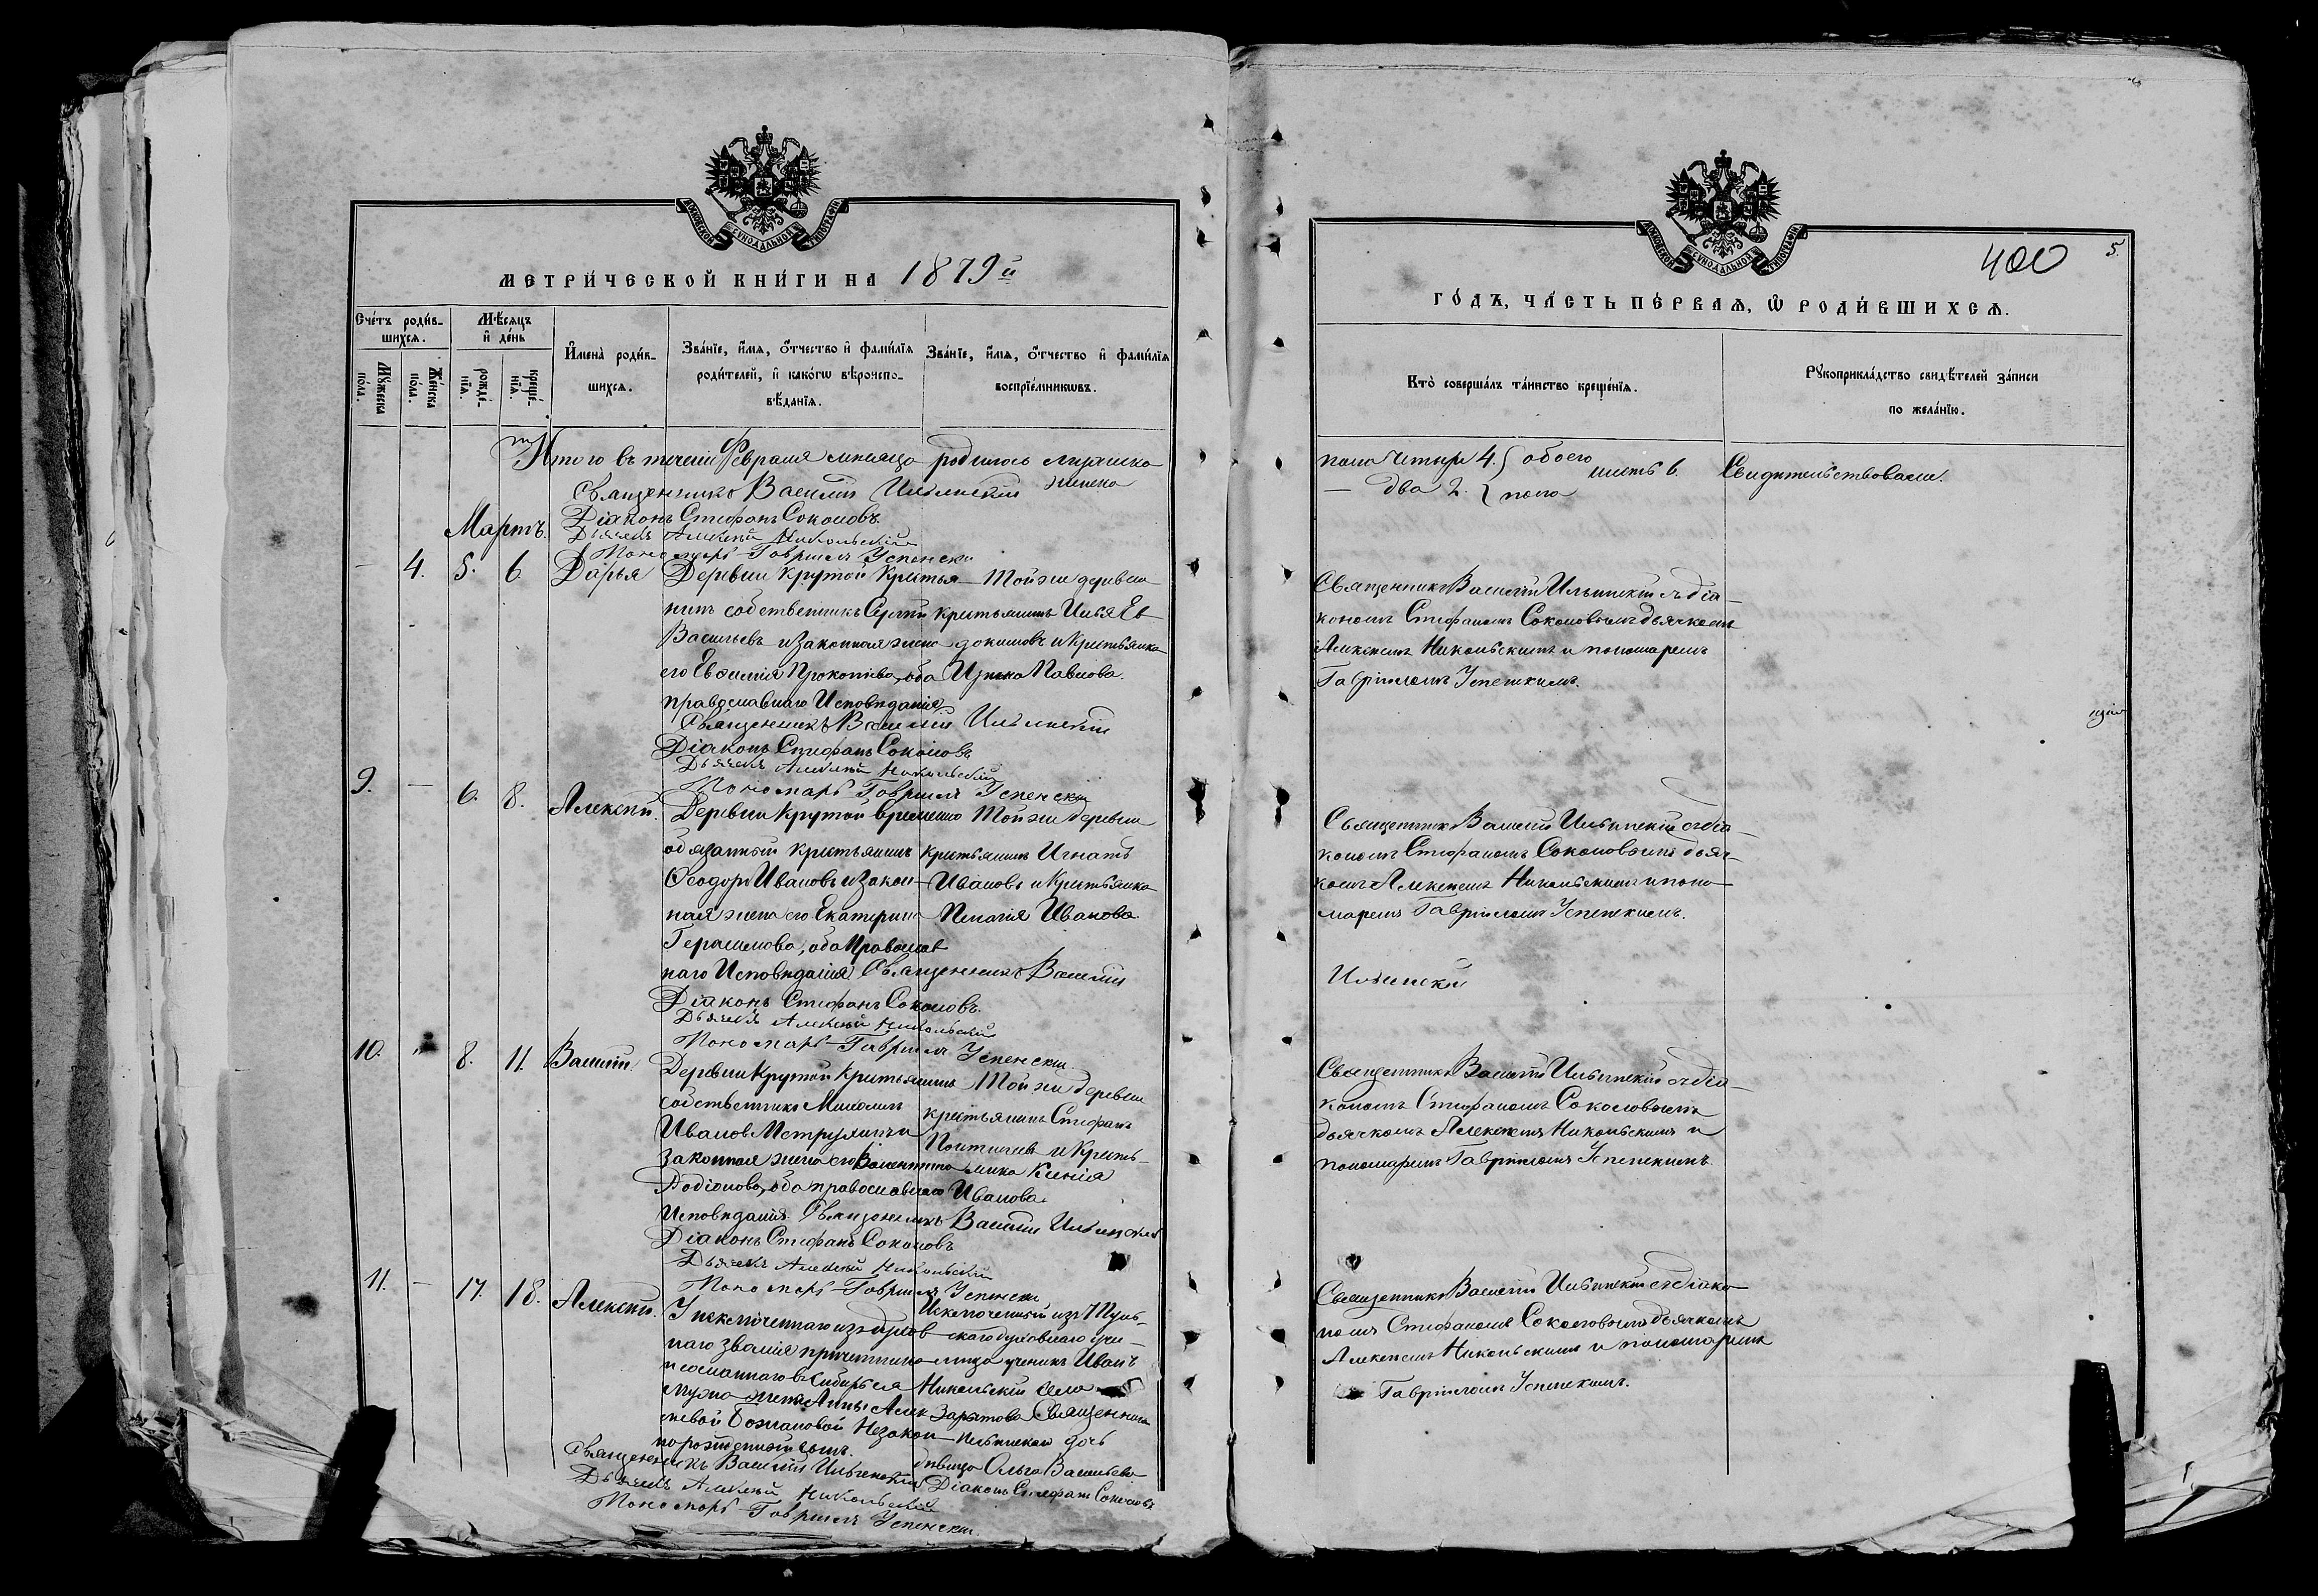 МОСКОВСКОЙ СѴНОДАЛЬНОЙ ТИПОГРАФІИ
МЕТРИ́ЧЕСКОЙ КНИ́ГИ НА 1879й
Сче́тъ роди́вшихсѧ.
Мꙋ́жеска по́ла.
Же́нска по́ла.
Мѣ́сѧцъ и҆ де́нь
рожде́нїѧ.
креще́нїѧ.
И҆мена̀ роди́вшихсѧ.
Зва́нїе, и҆́мѧ, ѻ҆́тчество и҆ фамилїѧ роди́телей, и҆ како́гѡ вѣроисповѣ́данїѧ.
Зва́нїе, и҆́мѧ, ѻ҆́тчество и҆ фами́лїѧ воспрїе́мникѡвъ.
Итого въ теченіи Февраля мѣсяца родилось мужеска
женска
Священникъ Василій Ильинскій
Діаконъ Стефанъ Соколовъ.
Мартъ.
Дьячекъ Алексѣй Никольскій
Пономарь Гавріилъ Успенскій
— 4. 5. 6. Дарья
Деревни Крутой Крестья-
нинъ собственникъ Сергѣй
Васильевъ и законная жена
его Евѳимія Прокопіева, оба
православнаго Исповѣданія
Той же деревни
крестьянинъ Илья Ев-
докимовъ и Крестьянка
Павлова.
Священникъ Василій Ильинскій
Діаконъ Стефанъ Соколовъ
Дьячекъ Алексѣй Никольскій
Пономарь Гавріилъ Успенскій
9. — 6. 8. Алексѣй.
Деревни Крутой временно
обязанный крестьянинъ
Ѳеодоръ Ивановъ и закон-
ная жена его Екатерина
Герасимова, оба Православ
наго Исповѣданія
Той же деревни
крестьянинъ Игнатъ
Ивановъ и Крестьянка
Пелагія Иванова
Священникъ Василій
Ильинскій
Діаконъ Стефанъ Соколовъ.
Дьячекъ Алексѣй Никольскій
Пономарь Гавріилъ Успенскій.
10. „ 8. 11. Василій.
Деревни Крутой Крестьянинъ
собственникъ
Ивановъ и
законная жена его Валентина
Родіонова, оба православнаго
Исповѣданія.
Той же деревни
крестьянинъ Стефанъ
и Кресть-
янка Ксенія
Иванова.
Священникъ Василій Ильинскій
Діаконъ Стефанъ Соколовъ
Дьячекъ Алексѣй Никольскій
Пономарь Гавріилъ Успенскій
11. — 17. 18. Алексѣй.
У исключеннаго изъ духов-
наго званія причетника
и сосланнаго въ Сибирь
жены Анны Алек
сѣевой Незакон-
норожденный сынъ.
Исключенный изъ
скаго духовнаго учи-
лища ученикъ Иванъ
Никольскій села
Священника
Ильинскаго дочь
дѣвица Ольга Васильева
Священникъ Василій Ильинскій
Діаконъ Стефанъ Соколовъ
Дьячекъ Алексѣй Никольскій
Пономарь Гавріилъ Успенскій.
МОСКОВСКОЙ СѴНОДАЛЬНОЙ ТИПОГРАФІИ
400 5.
ГО́ДЪ, ЧА́СТЬ ПЕ́РВАѦ, Ѽ РОДИ́ВШИХСѦ.
Кто̀ соверша́лъ та́инство креще́нїѧ.
Рꙋкоприкла́дство свидѣ́телей за́писи по жела́нїю.
пола четыре 4. } обоего шесть 6. Свидетельствовали.
— два 2. } пола
Священникъ Василій Ильинскій съ діа-
кономъ Стефаномъ Соколовымъ дьячкомъ
Алексѣемъ Никольскимъ и пономаремъ
Гавріиломъ Успенскимъ.
Священникъ Василій Ильинскій съ діа-
кономъ Стефаномъ Соколовымъ дьяч-
комъ Алексѣемъ Никольскимъ и поно-
маремъ Гавріиломъ Успенскимъ.
Священникъ Василій Ильинскій съ діа-
кономъ Стефаномъ Соколовымъ
дьячкомъ Алексѣемъ Никольскимъ и
пономаремъ Гавріиломъ Успенскимъ.
Священникъ Василій Ильинскій съ діако-
номъ Стефаномъ Соколовымъ дьячкомъ
Алексѣемъ Никольскимъ и пономаремъ
Гавріиломъ Успенскимъ.